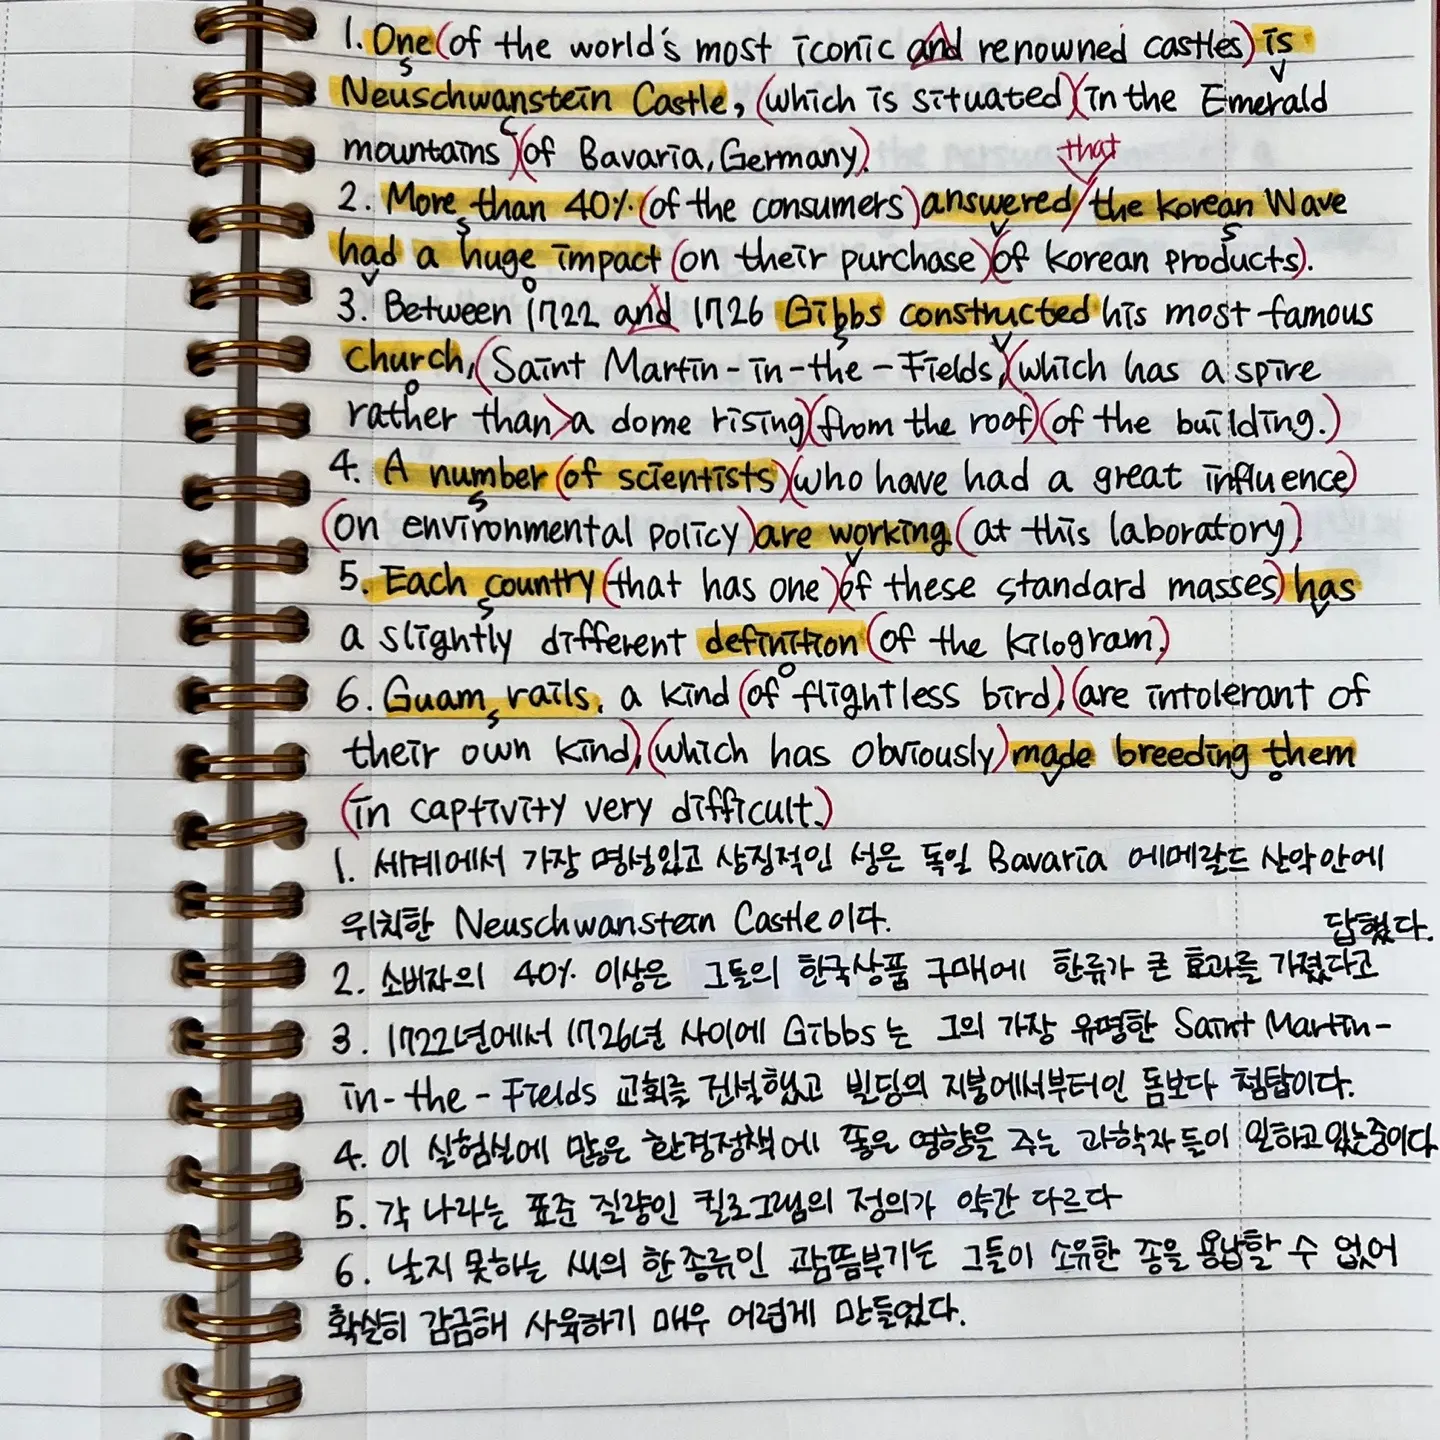 1. One (of the world's most iconic and renowned castles) is
s v
Neuschwanstein Castle, (which is situated)(in the Emerald
c
mountains)(of Bavaria, Germany).
that
2. More than 40% (of the consumers) answered / the Korean Wave
s v s
had a huge impact (on their purchase)(of Korean products).
v o
3. Between 1722 and 1726 Gibbs constructed his most famous
s v
church, (Saint Martin-in-the-Fields,)(which has a spire
o
rather than> a dome rising)(from the roof)(of the building.)
4. A number (of scientists)(who have had a great influence)
s
(on environmental policy) are working (at this laboratory).
v
5. Each country (that has one)(of these standard masses) has
s v
a slightly different definition (of the kilogram.)
o
6. Guam rails, a kind (of flightless bird), (are intolerant of
s
their own kind), (which has obviously) made breeding them
v o
(in captivity very difficult.)
1. 세계에서 가장 명성있고 상징적인 성은 독일 Bavaria 에메랄드 산악안에
위치한 Neuschwanstein Castle이다.
2. 소비자의 40% 이상은 그들의 한국상품 구매에 한류가 큰 효과를 가졌다고
답했다.
3. 1722년에서 1726년 사이에 Gibbs는 그의 가장 유명한 Saint Martin-
in-the-Fields 교회를 건설했고 빌딩의 지붕에서부터인 돔보다 첨탑이다.
4. 이 실험실에 많은 환경정책에 좋은 영향을 주는 과학자들이 일하고 있는중이다
5. 각 나라는 표준 질량인 킬로그램의 정의가 약간 다르다
6. 날지 못하는 새의 한 종류인 괌뜸부기는 그들이 소유한 종을 용납할 수 없어
확실히 감금해 사육하기 매우 어렵게 만들었다.